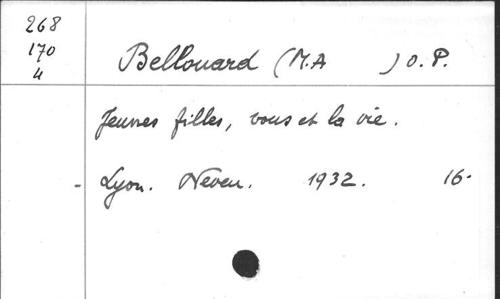 268
170
4
Bellouard (M.A ) O.P.
Jeunes filles, vous et la vie.
- Lyon. Neveu. 1932. 16-